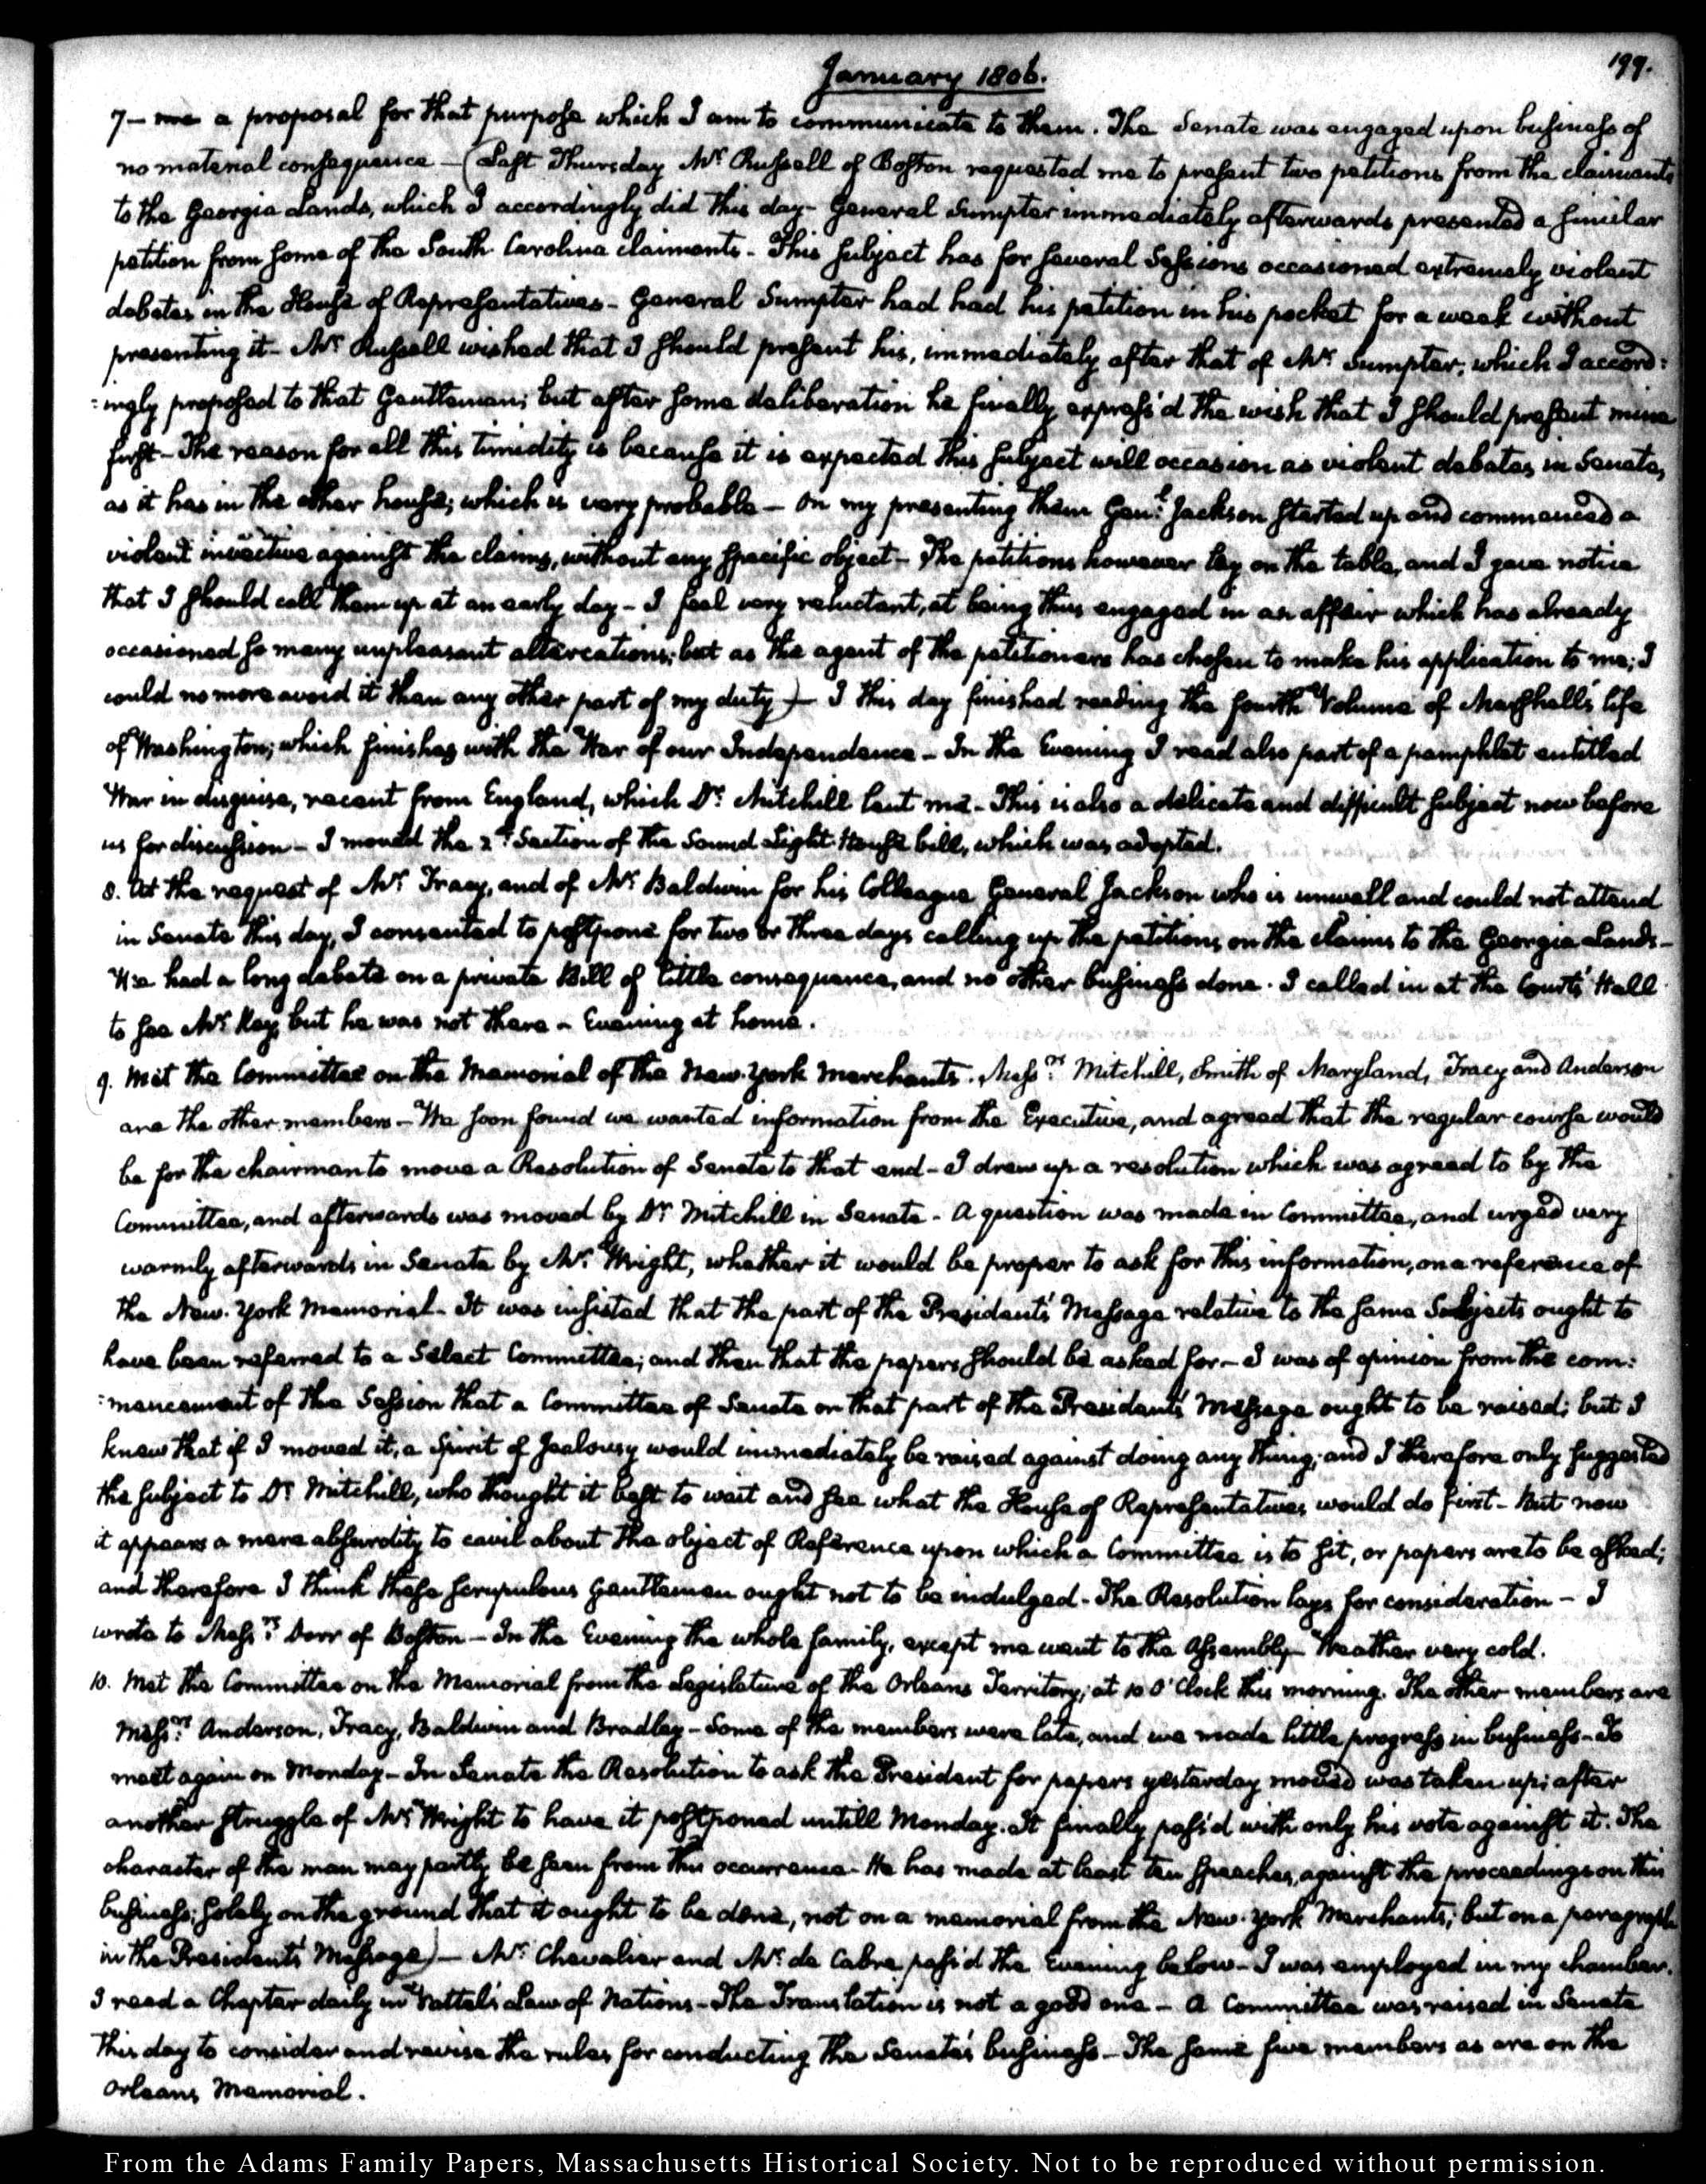 January 1806.
199.
7 — me a proposal for that purpose which I am to communicate to them. The Senate was engaged upon business of
no material consequence — (Last Thursday Mr. Russell of Boston requested me to present two petitions from the claimants
to the Georgia Lands, which I accordingly did this day — General Sumpter immediately afterwards presented a similar
petition from some of the South Carolina claimants — This subject has for several Sessions occasioned extremely violent
debates in the House of Representatives — General Sumpter had had his petition in his pocket for a week without
presenting it — Mr. Russell wished that I should present his, immediately after that of Mr. Sumpter; which I accord:
:ingly proposed to that Gentleman; but after some deliberation he finally express'd the wish that I should present mine
first — The reason for all this timidity is because it is expected this subject will occasion as violent debates in Senate,
as it has in the other house; which is very probable — On my presenting them Genl. Jackson started up and commenced a
violent invective against the claims, without any specific object — The petitions however lay on the table, and I gave notice
that I should call them up at an early day — I feel very reluctant, at being thus engaged in an affair which has already
occasioned so many unpleasant altercations; but as the agent of the petitioners has chosen to make his application to me; I
could no more avoid it than any other part of my duty) — I this day finished reading the fourth Volume of Marshall's life
of Washington; which finishes with the War of our Independence — In the Evening I read also part of a pamphlet entitled
War in disguise, recent from England, which Dr. Mitchill lent me — This is also a delicate and difficult subject now before
us for discussion — I moved the 2d. Section of the Sound Light House bill, which was adopted.
8. At the request of Mr. Tracy, and of Mr. Baldwin for his Colleague General Jackson who is unwell and could not attend
in Senate this day, I consented to postpone for two or three days calling up the petitions on the claims to the Georgia Lands —
We had a long debate on a private Bill of little consequence, and no other business done. I called in at the Courts' Hall
to see Mr. Key, but he was not there — Evening at home.
9. Met the Committee on the Memorial of the New-York Merchants. Messrs. Mitchill, Smith of Maryland, Tracy and Anderson
are the other members — We soon found we wanted information from the Executive, and agreed that the regular course would
be for the chairman to move a Resolution of Senate to that end — I drew up a resolution which was agreed to by the
Committee, and afterwards was moved by Dr. Mitchill in Senate — A question was made in Committee, and urged very
warmly afterwards in Senate by Mr. Wright, whether it would be proper to ask for this information, on a reference of
the New-York Memorial — It was insisted that the part of the President's Message relative to the same Subjects ought to
have been referred to a Select Committee; and then that the papers should be asked for — I was of opinion from the com:
:mencement of the Session that a Committee of Senate on that part of the President's Message ought to be raised; but I
knew that if I moved it, a Spirit of Jealousy would immediately be raised against doing any thing; and I therefore only suggested
the subject to Dr. Mitchill, who thought it best to wait and see what the House of Representatives would do first — But now
it appears a mere absurdity to cavil about the object of Reference upon which a Committee is to sit, or papers are to be asked;
and therefore I think these scrupulous Gentlemen ought not to be indulged — The Resolution lays for consideration — I
wrote to Messrs. Dorr of Boston — In the Evening the whole family, except me went to the Assembly — Weather very cold.
10. Met the Committee on the Memorial from the Legislature of the Orleans Territory; at 10 O'Clock this morning. The other members are
Messrs. Anderson, Tracy, Baldwin and Bradley — Some of the members were late, and we made little progress in business — To
meet again on Monday — In Senate the Resolution to ask the President for papers yesterday moved was taken up; after
another struggle of Mr. Wright to have it postponed untill Monday. It finally pass'd with only his vote against it. The
character of the man may partly be seen from this occurrence — He has made at least ten speeches, against the proceedings on this
business; solely on the ground that it ought to be done, not on a memorial from the New-York Merchants; but on a paragraph
in the President's Message) — Mr. Chevalier and Mr. de Cabre pass'd the Evening below — I was employed in my chamber.
I read a Chapter daily in Vattel's Law of Nations — The Translation is not a good one — A Committee was raised in Senate
this day to consider and revise the rules for conducting the Senate's business — The same five members as are on the
Orleans Memorial.
From the Adams Family Papers, Massachusetts Historical Society. Not to be reproduced without permission.